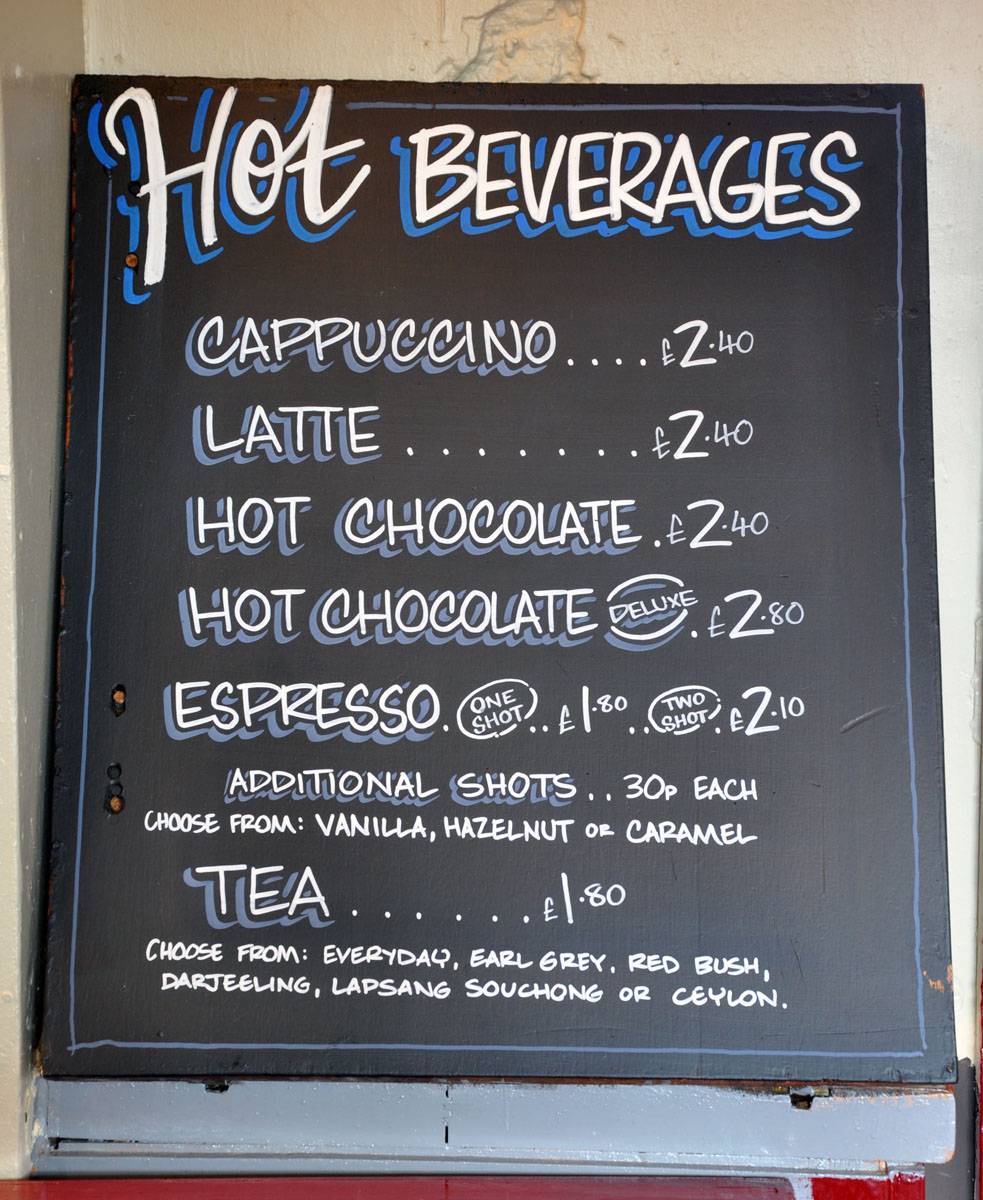 Hot BEVERAGES
CAPPUCCINO....£2.40
LATTE ........£2.40
HOT CHOCOLATE.£2.40
HOT CHOCOLATE DELUXE.£2.80
ESPRESSO. ONE SHOT..£1.80 ..TWO SHOT.£2.10
ADDITIONAL SHOTS..30p EACH
CHOOSE FROM: VANILLA, HAZELNUT OR CARAMEL
TEA.......£1.80
CHOOSE FROM: EVERYDAY, EARL GREY, RED BUSH,
DARJEELING, LAPSANG SOUCHONG OR CEYLON.